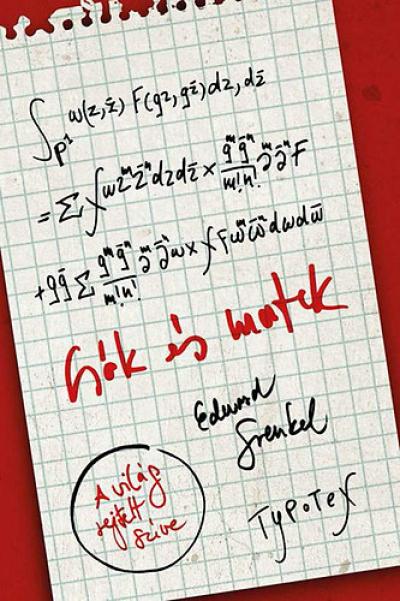 ∫_{P¹} ω(z,z̄) F(qz,q̄z̄) dz,dz̄
= Σ ∫ ωz^m z̄^n dz dz̄ × q^m q̄^n / m!n! ∂^m ∂̄^n F
+ qq̄ Σ q^m q̄^n / m!n! ∂^m ∂̄^n ω × ∫ F ω^m ω̄^n dω dω̄
Csók és matek
Edward
Frenkel
A világ
rejtett
szíve
TYPOTEX